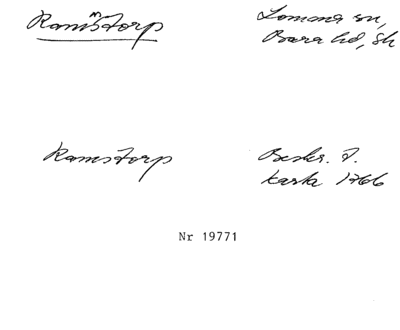 Ramstorp
Lomma sn,
Bara hd, Sk
Ramstorp
Beskr. t.
karta 1766
Nr 19771